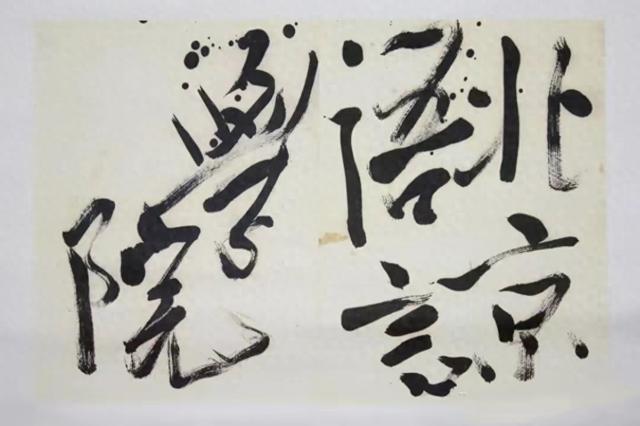 北京
語言
學院